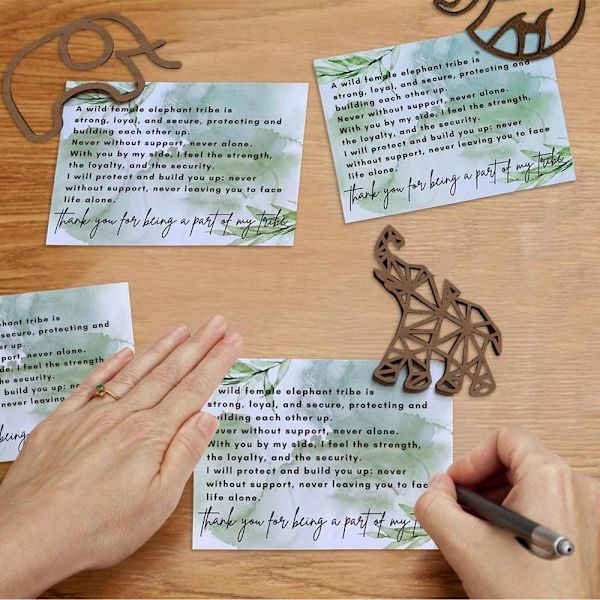 A wild female elephant tribe is
strong, loyal, and secure, protecting and
building each other up.
Never without support, never alone.
With you by my side, I feel the strength,
the loyalty, and the security.
I will protect and build you up: never
without support, never leaving you to face
life alone.
thank you for being a part of my tribe
A wild female elephant tribe is
strong, loyal, and secure, protecting and
building each other up.
Never without support, never alone.
With you by my side, I feel the strength,
the loyalty, and the security.
I will protect and build you up: never
without support, never leaving you to face
life alone.
thank you for being a part of my tribe
tribe is
secure, protecting and
never alone.
I feel the strength
the security.
build you up:
never leaving
being
wild female elephant tribe is
strong, loyal, and secure, protecting and
building each other up.
Never without support, never alone.
With you by my side, I feel the strength,
the loyalty, and the security.
I will protect and build you up: never
without support, never leaving you to fac
life alone.
thank you for being a part of m